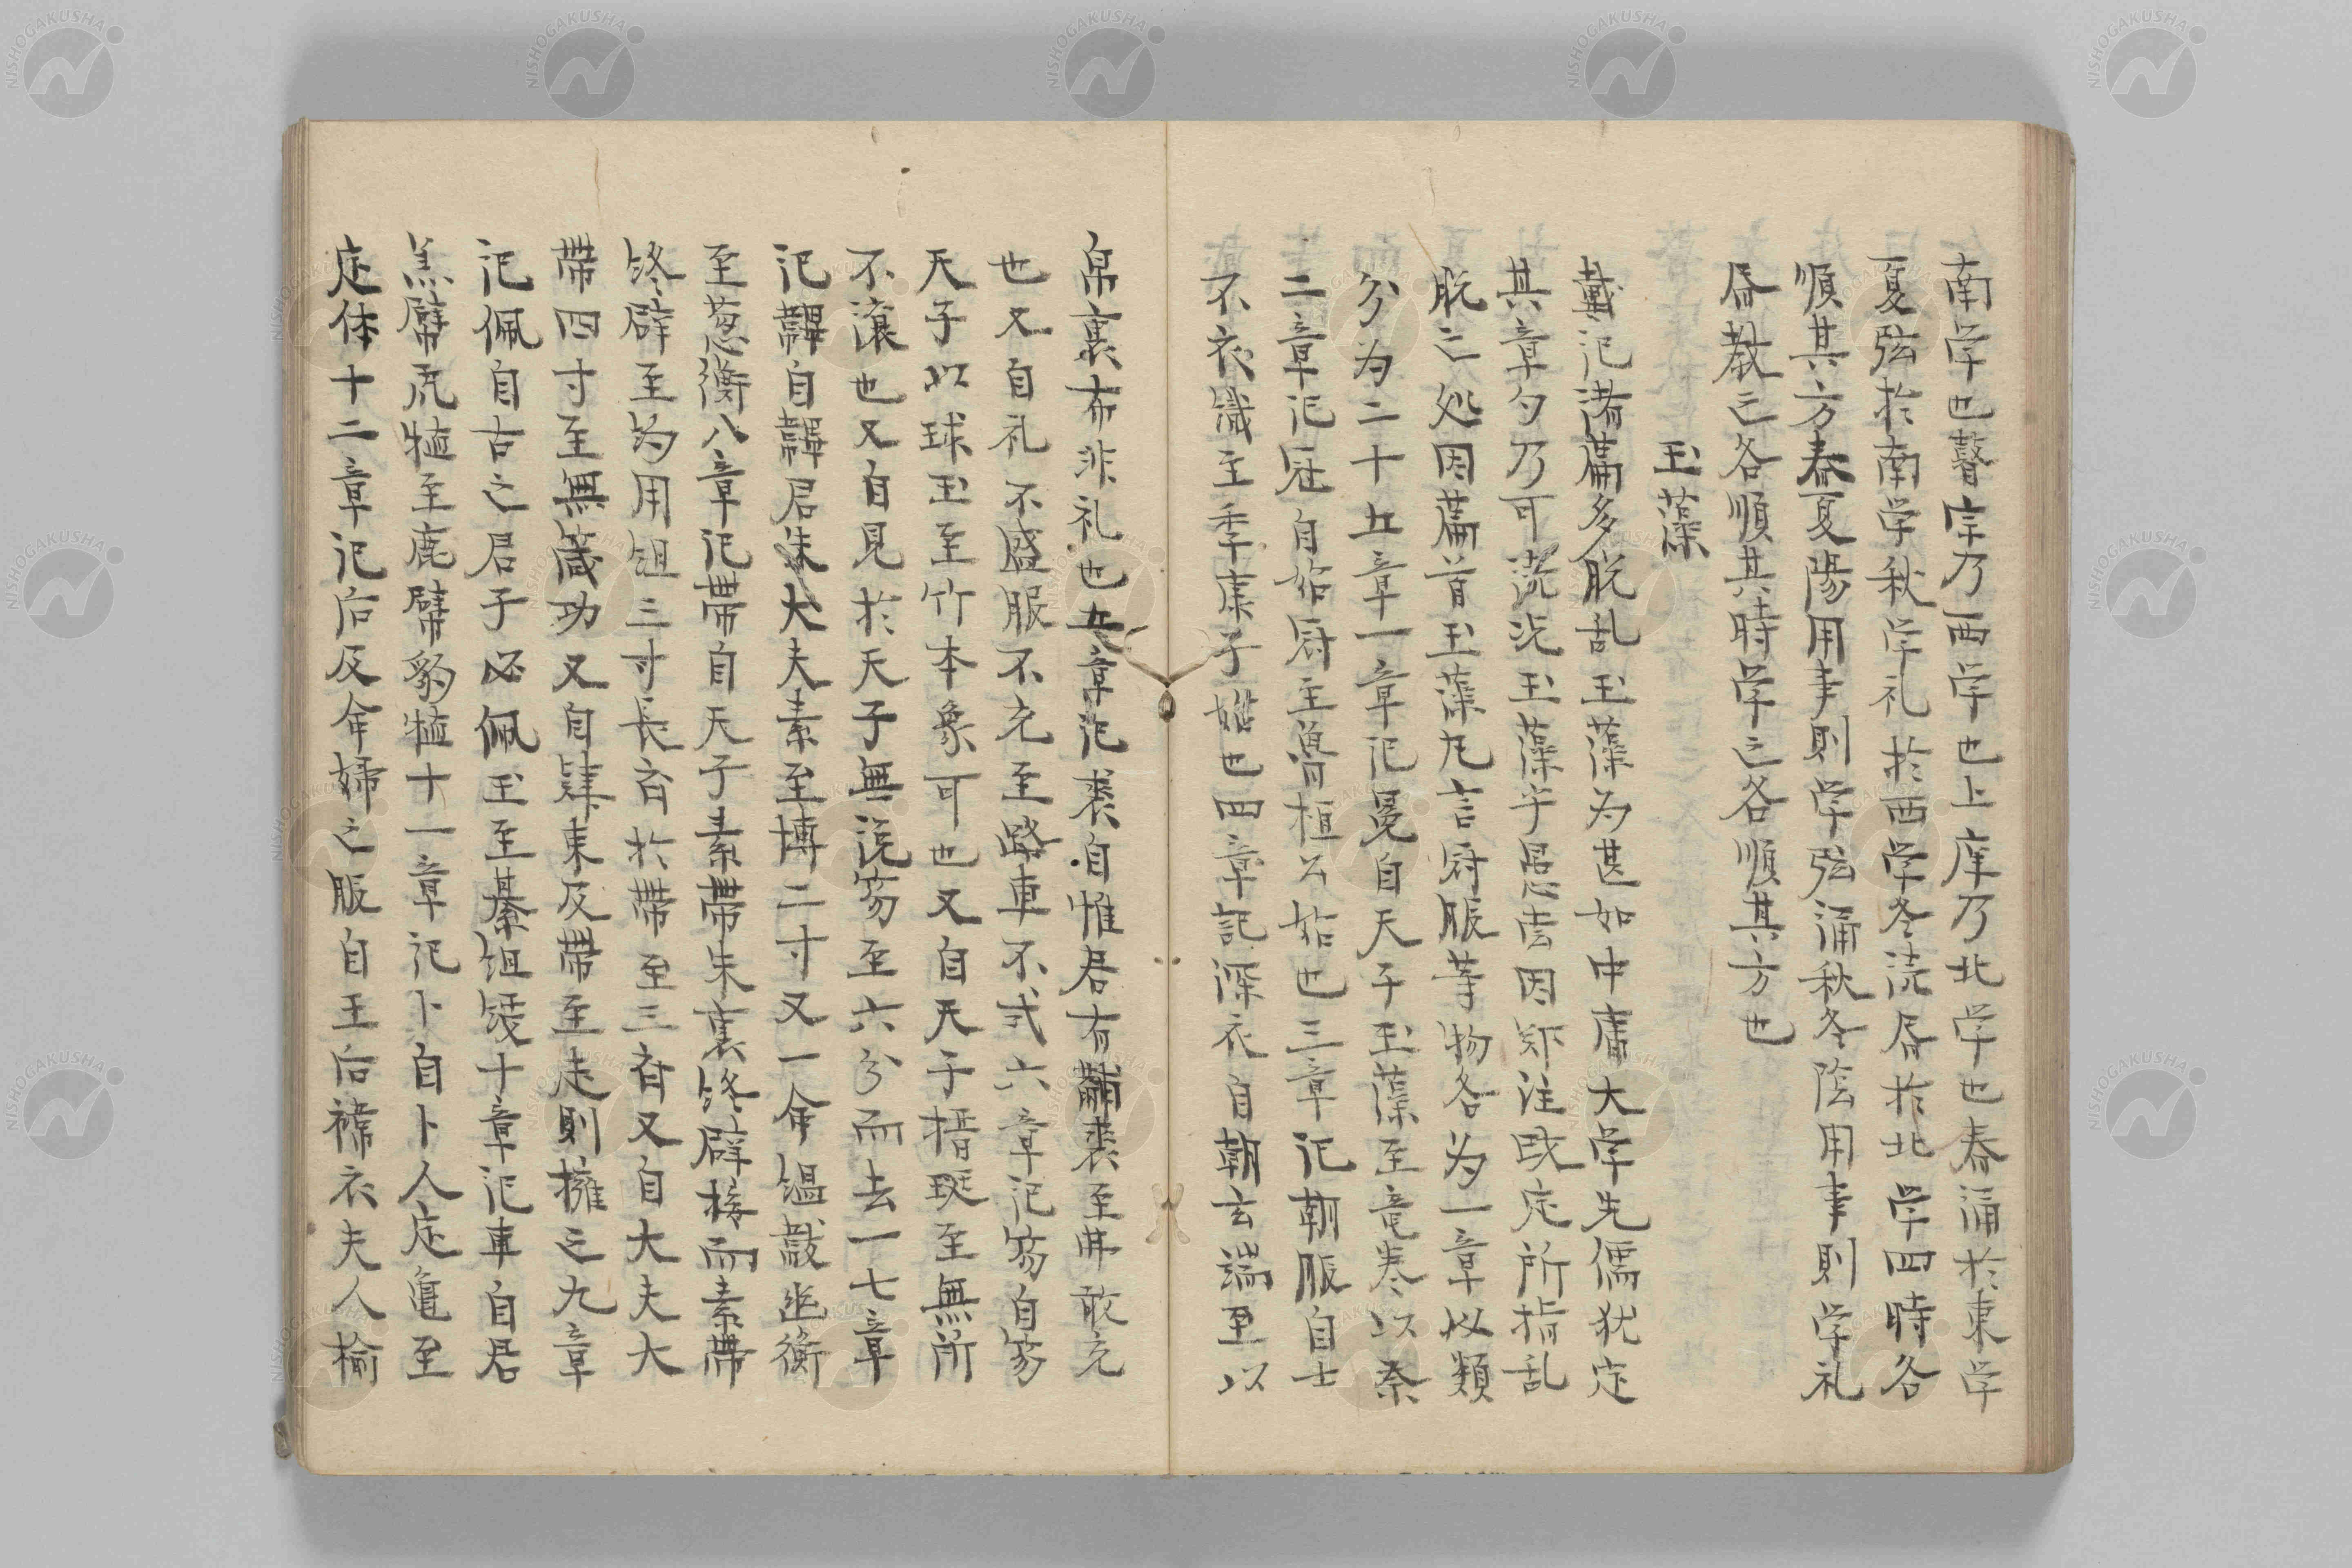 南学也瞽宗乃西学也上庠乃北学也春誦於東学
夏弦於南学秋学礼於西学冬読書於北学四時各
順其方春夏陽用事則学弦誦秋冬陰用事則学礼
書教之各順其時学之各順其方也
玉藻
戴記諸篇多脱乱玉藻為甚如中庸大学先儒猶定
其章句乃可読況玉藻乎愚嘗因鄭注既定所指乱
脱之処因篇首玉藻凡言冠服等物各為一章以類
分為二十五章一章記冕自天子玉藻至竜巻以祭
二章記冠自始冠至魯桓公始也三章記朝服自士
不衣織至季康子始也四章記深衣自朝玄端至以
帛裏布非礼也五章記裘自惟君有黼裘至弗敢充
也又自礼不盛服不充至路車不式六章記笏自笏
天子以球玉至竹本象可也又自天子搢珽至無所
不讓也又自見於天子無説笏至六分而去一七章
記韠自韠君朱大夫素至博二寸又一命縕韍幽衡
至葱衡八章記帯自天子素帯朱裏終辟而素帯
終辟至約用組三寸長斉於帯至三斉又自大夫大
帯四寸至無箴功又自肆束及帯至走則擁之九章
記佩自古之君子必佩玉至綦組綬十章記車自君
羔幦虎犆至鹿幦豹犆十一章記卜自卜人定亀至
定体十二章記后及命婦之服自王后褘衣夫人揄
NISHOGAKUSHA